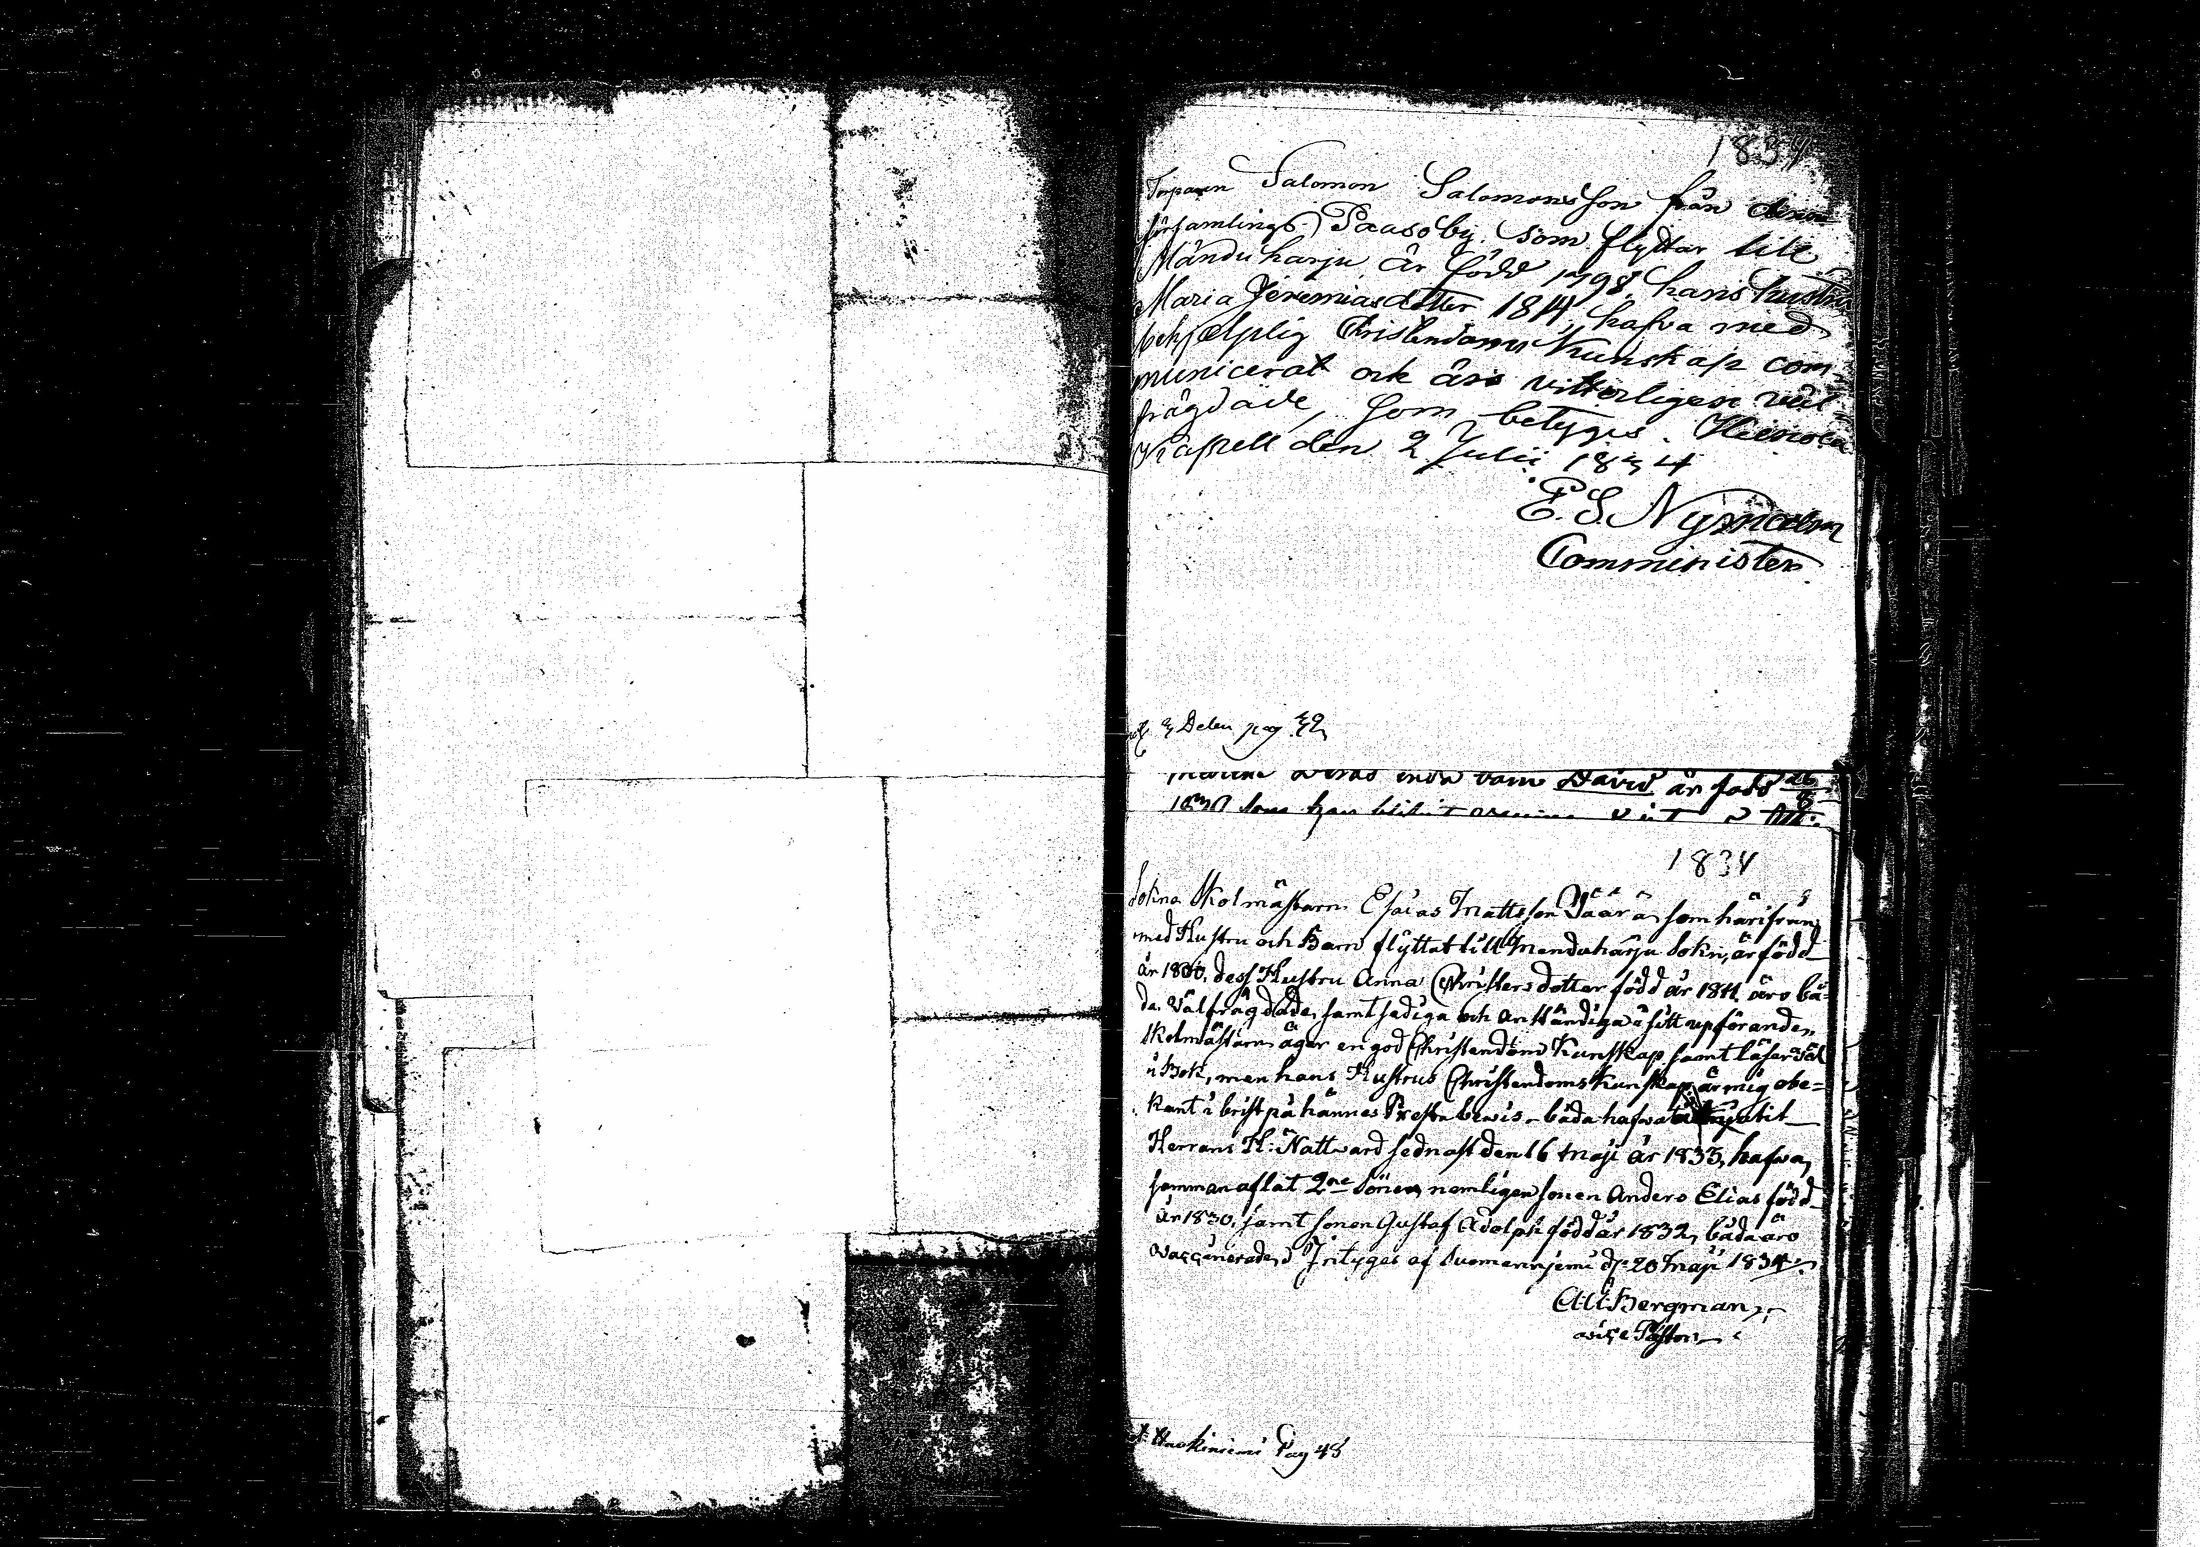 1834
Torparen Salomon Salomonsson från denna
församlings Paaso by som flyttar till
Mänduharju är född 1798, hans hustru
Maria Jeremiasdotter 1814, hafva med
behjelplig Christendoms Kunskap com-
municerat och äro vitterligen väl-
frägdade, som betygas. Heinola
Kapell den 2 Julii 1834
E. S. Nymalm
Comminister
Delen pag 32
barn David är född 26
1830
1834
Sokne Skolmästarn Esaias Mattsson Väärä, som härifrån
med Hustru och Barn flyttat till Menduharju Sokn, är född
år 1800, dess Hustru Anna Christersdotter född år 1811 äro bå-
da Välfrägdade, samt sediga och anständiga i sitt upförande,
Skolmästarn äger en god Christendoms Kunskap samt läser väl
i Bok, men hans Hustrus Christendoms kunskap är mig obe=
kant i brist på hännes Prestabewis, båda hafwa
Herrans H: Nattward sednast den 16 Maji år 1833, hafwa
samman aflat 2ne Söner, nemligen sonen Anders Elias född
år 1830, samt sonen Gustaf Adolph född år 1832, båda äro
vaccinerade, Intygas af Suomenniemi d. 20 Maji 1834
Bergman
vice Pastor
Pag 45